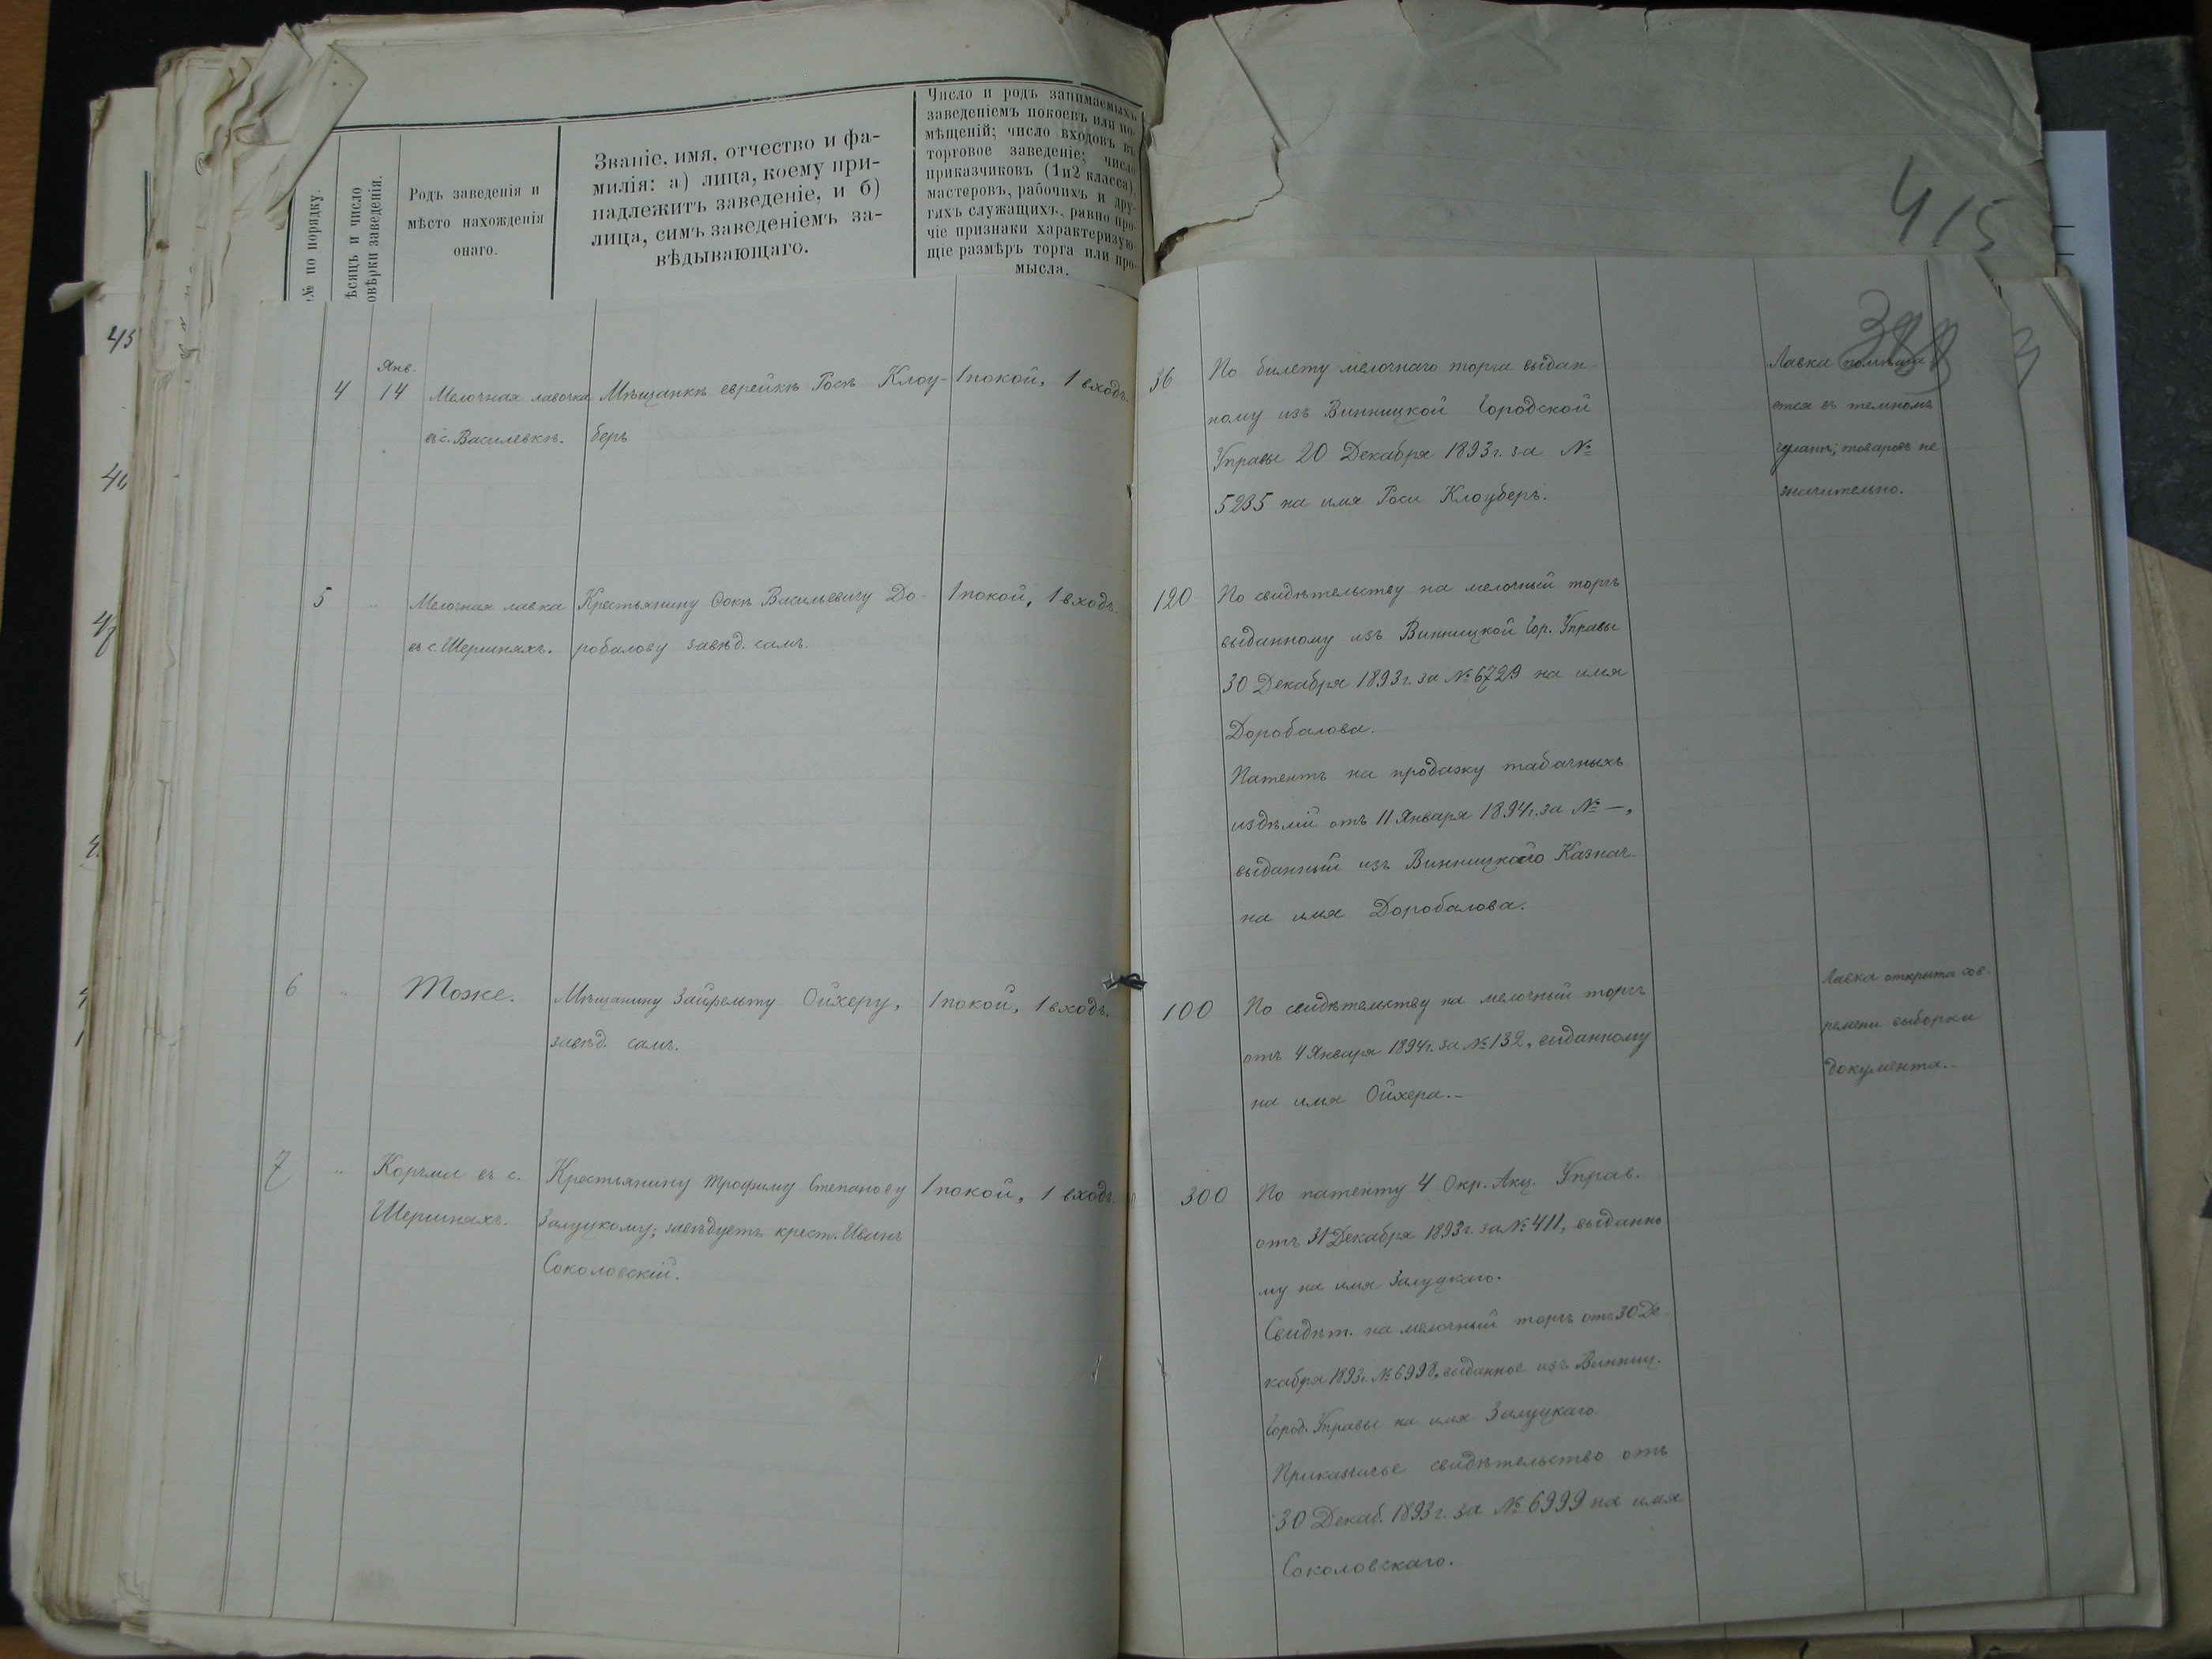 415
388
№ по порядку.
ѣсяцъ и число
овѣрки заведенія.
Родъ заведенія и
мѣсто нахожденія
онаго.
Званіе, имя, отчество и фа-
милія: а) лица, коему при-
надлежитъ заведеніе, и б)
лица, симъ заведеніемъ за-
вѣдывающаго.
Число и родъ занимаемыхъ
заведеніемъ покоевъ или по-
мѣщеній; число входовъ въ
торговое заведеніе; число
приказчиковъ (1и2 класса),
мастеровъ, рабочихъ и дру-
гихъ служащихъ, равно про-
чіе признаки характеризую-
щіе размѣръ торга или про-
мысла.
4
Янв.
14
Мелочная лавочка
въ с. Василевкѣ.
Мѣщанкѣ еврейкѣ Госѣ Клоу-
беръ
1 покой, 1 входъ.
36
По билету мелочнаго торга выдан-
ному изъ Винницкой Городской
Управы 20 Декабря 1893 г. за №
5235 на имя Госи Клоуберъ.
Лавка помѣща-
ется въ темномъ
чуланѣ; товаровъ не
значительно.
5
"
Мелочная лавка
въ с. Шершняхъ.
Крестьянину Ѳокѣ Васильевичу До-
робалову завѣд. самъ.
1 покой, 1 входъ.
120
По свидѣтельству на мелочный торгъ
выданному изъ Винницкой Гор. Управы
30 Декабря 1893 г. за № 6729 на имя
Доробалова.
Патентъ на продажу табачныхъ
издѣлій отъ 11 Января 1894 г. за № —,
выданный изъ Винницкаго Казнач.
на имя Доробалова.
6
"
Тоже.
Мѣщанину Ойхеру,
завѣд. самъ.
1 покой, 1 входъ.
100
По свидѣтельству на мелочный торгъ
отъ 4 Января 1894 г. за № 132, выданному
на имя Ойхера.-
Лавка открыта совъ-
ремени выборки
документа.-
7
"
Корчма въ с.
Шершняхъ.
Крестьянину Трофиму Степанову
Залуцкому; завѣдуетъ крест. Иванъ
Соколовскій.
1 покой, 1 входъ.
300
По патенту 4 Окр. Акц. Управ.
отъ 31 Декабря 1893 г. за № 411, выданно
му на имя Залуцкаго.
Свидѣт. на мелочный торгъ отъ 30 Де
кабря 1893 г. № 6998, выданное изъ Винниц.
Город. Управы на имя Залуцкаго
Приказчичье свидѣтельство отъ
30 Декаб. 1893 г. за № 6999 на имя
Соколовскаго.